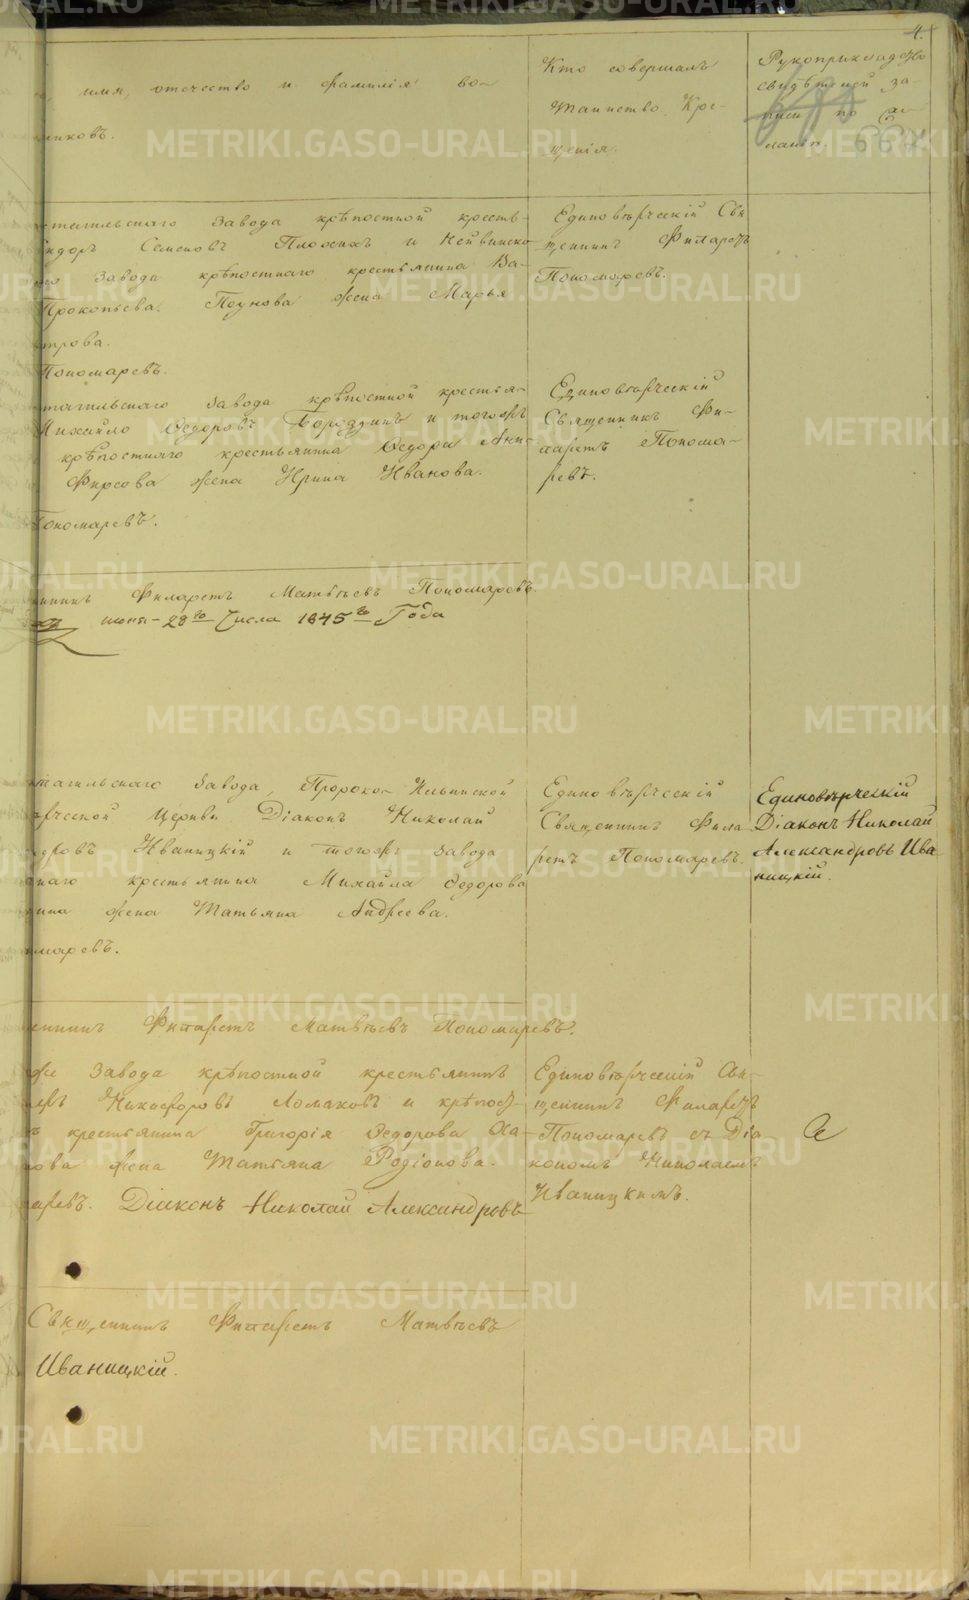 4.
имя, отечество и фамилія во-
никовъ.
Кто совершалъ
Таинство Кре-
щенія.
Рукоприкладство
свидѣтелей за-
писи по
667
тагильскаго Завода крѣпостной кресть-
Семеновъ и Нейвинско
Завода крѣпостнаго крестьянина Ва-
Прокопьева жена Марья
трова.
Пономаревъ.
Единовѣрческій Свя
щенникъ Филаретъ
Пономаревъ.
тагильскаго Завода крѣпостной крестья-
Михайло Ѳедоровъ Бороздинъ и тогожъ
крѣпостнаго крестьянина Ѳедора
Фирсова жена Ирина Иванова.
Пономаревъ.
Единовѣрческій
Священникъ Фи-
ларетъ Понома-
ревъ.
щенникъ Филаретъ Матвѣевъ Пономаревъ.
июня 28го Числа 1845го Года
тагильскаго Завода, Пророко-Ильинской
вѣрческой Церкви Діаконъ Николай
дровъ Иваницкій и тогожъ Завода
наго крестьянина Михайла Ѳедорова
дина жена Татьяна Андреева.
омаревъ.
Единовѣрческій
Священникъ Фила
ретъ Пономаревъ.
Единовѣрческій
Діаконъ Николай
Александровъ Ива
ницкій.
щенникъ Филаретъ Матвѣевъ Пономаревъ.
же Завода крѣпостной крестьянинъ
Никифоровъ Ломаковъ и крѣпост-
крестьянина Григорія Ѳедорова Ха-
нова жена Татьяна Родіонова.
маревъ. Діаконъ Николай Александровъ
Единовѣрческій Свя-
щенникъ Филаретъ
Пономаревъ съ Діа
кономъ Николаемъ
Иваницкимъ.
Священникъ Филаретъ Матвѣевъ
Иваницкій.
METRIKI.GASO-URAL.RU